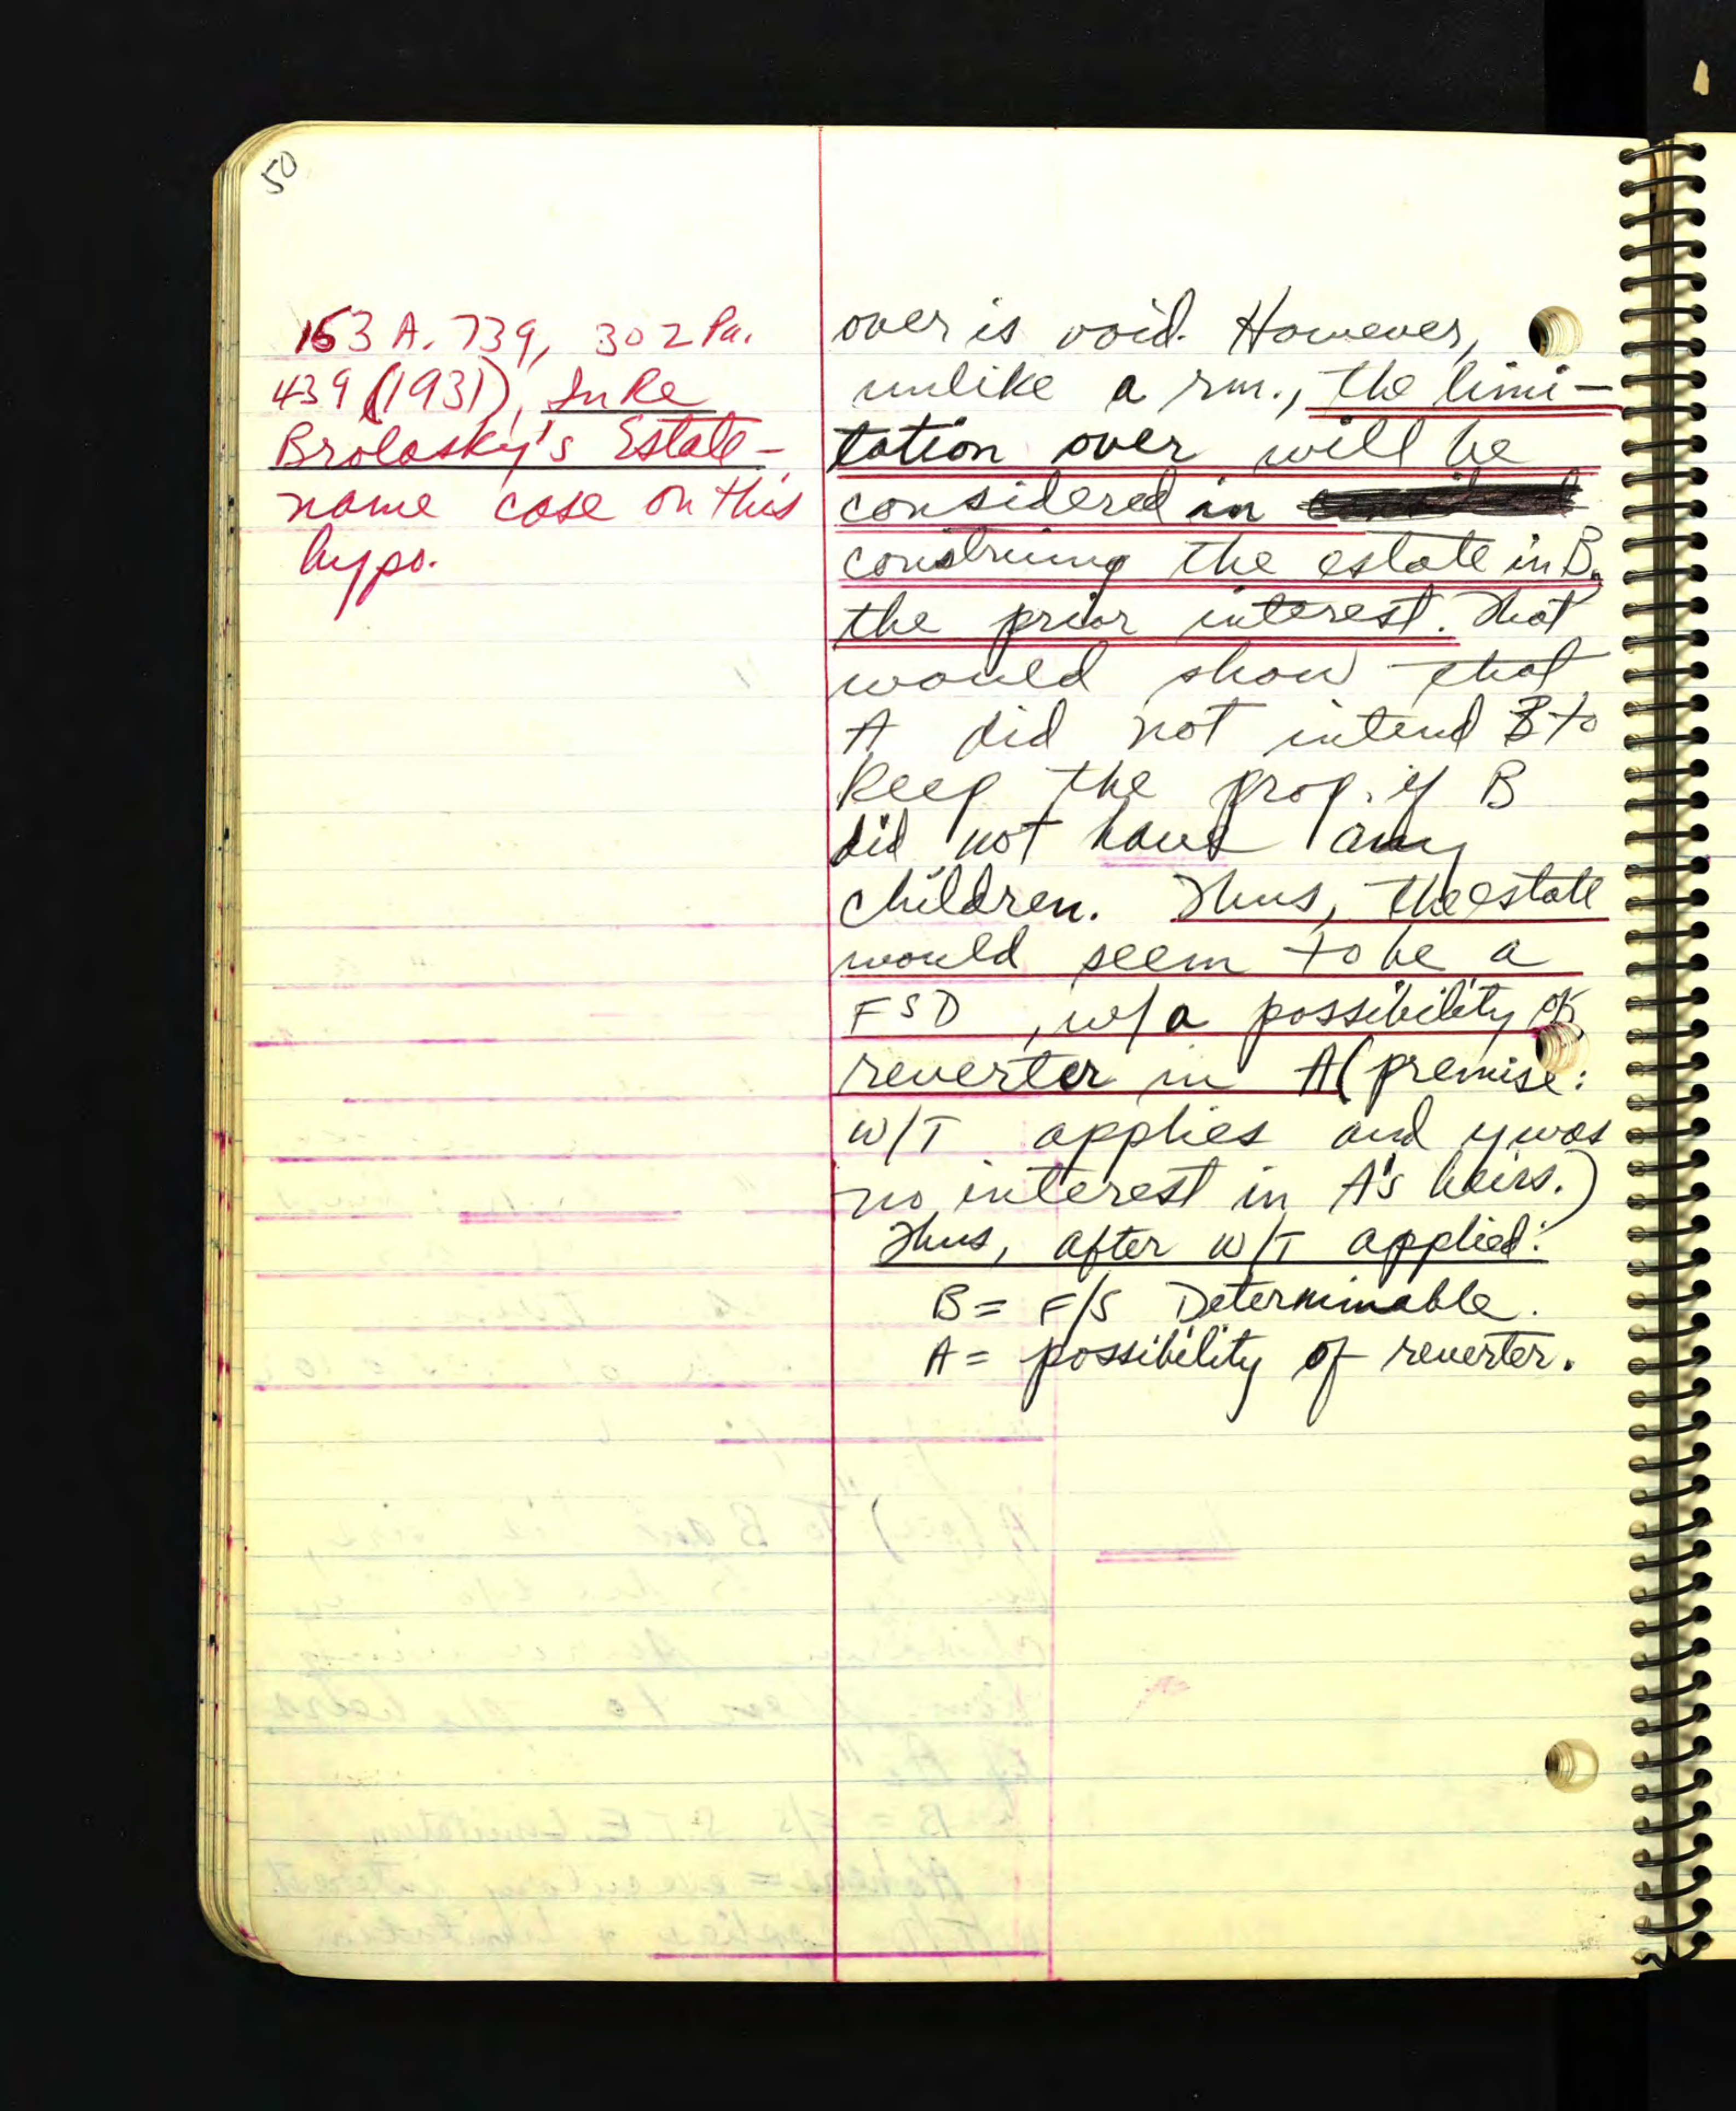 50
153 A. 739, 302 Pa.
439 (1931), In Re
Brolasky's Estate -
name case on this
hypo.
over is void. However,
unlike a rm., the limi-
tation over will be
considered in
construing the estate in B,
the prior interest. That
would show that
A did not intend B to
keep the prop. if B
did not have any
children. Thus, the estate
would seem to be a
FSD, w/a possibility of
reverter in A (premise:
W/T applies and y was
no interest in A's heirs.)
Thus, after W/T applied:
B = F/S Determinable.
A = possibility of reverter.